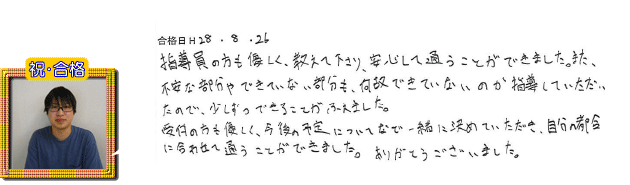 祝・合格
合格日 H28.8.26
指導員の方も優しく、教えて下さり、安心して通うことができました。また、
不安な部分やできていない部分も、何故できていないのか指導していただい
たので、少しずつできることがふえました。
受付の方も優しく、今後の予定についてなど一緒に決めていただき、自分の都合
に合わせて通うことができました。ありがとうございました。